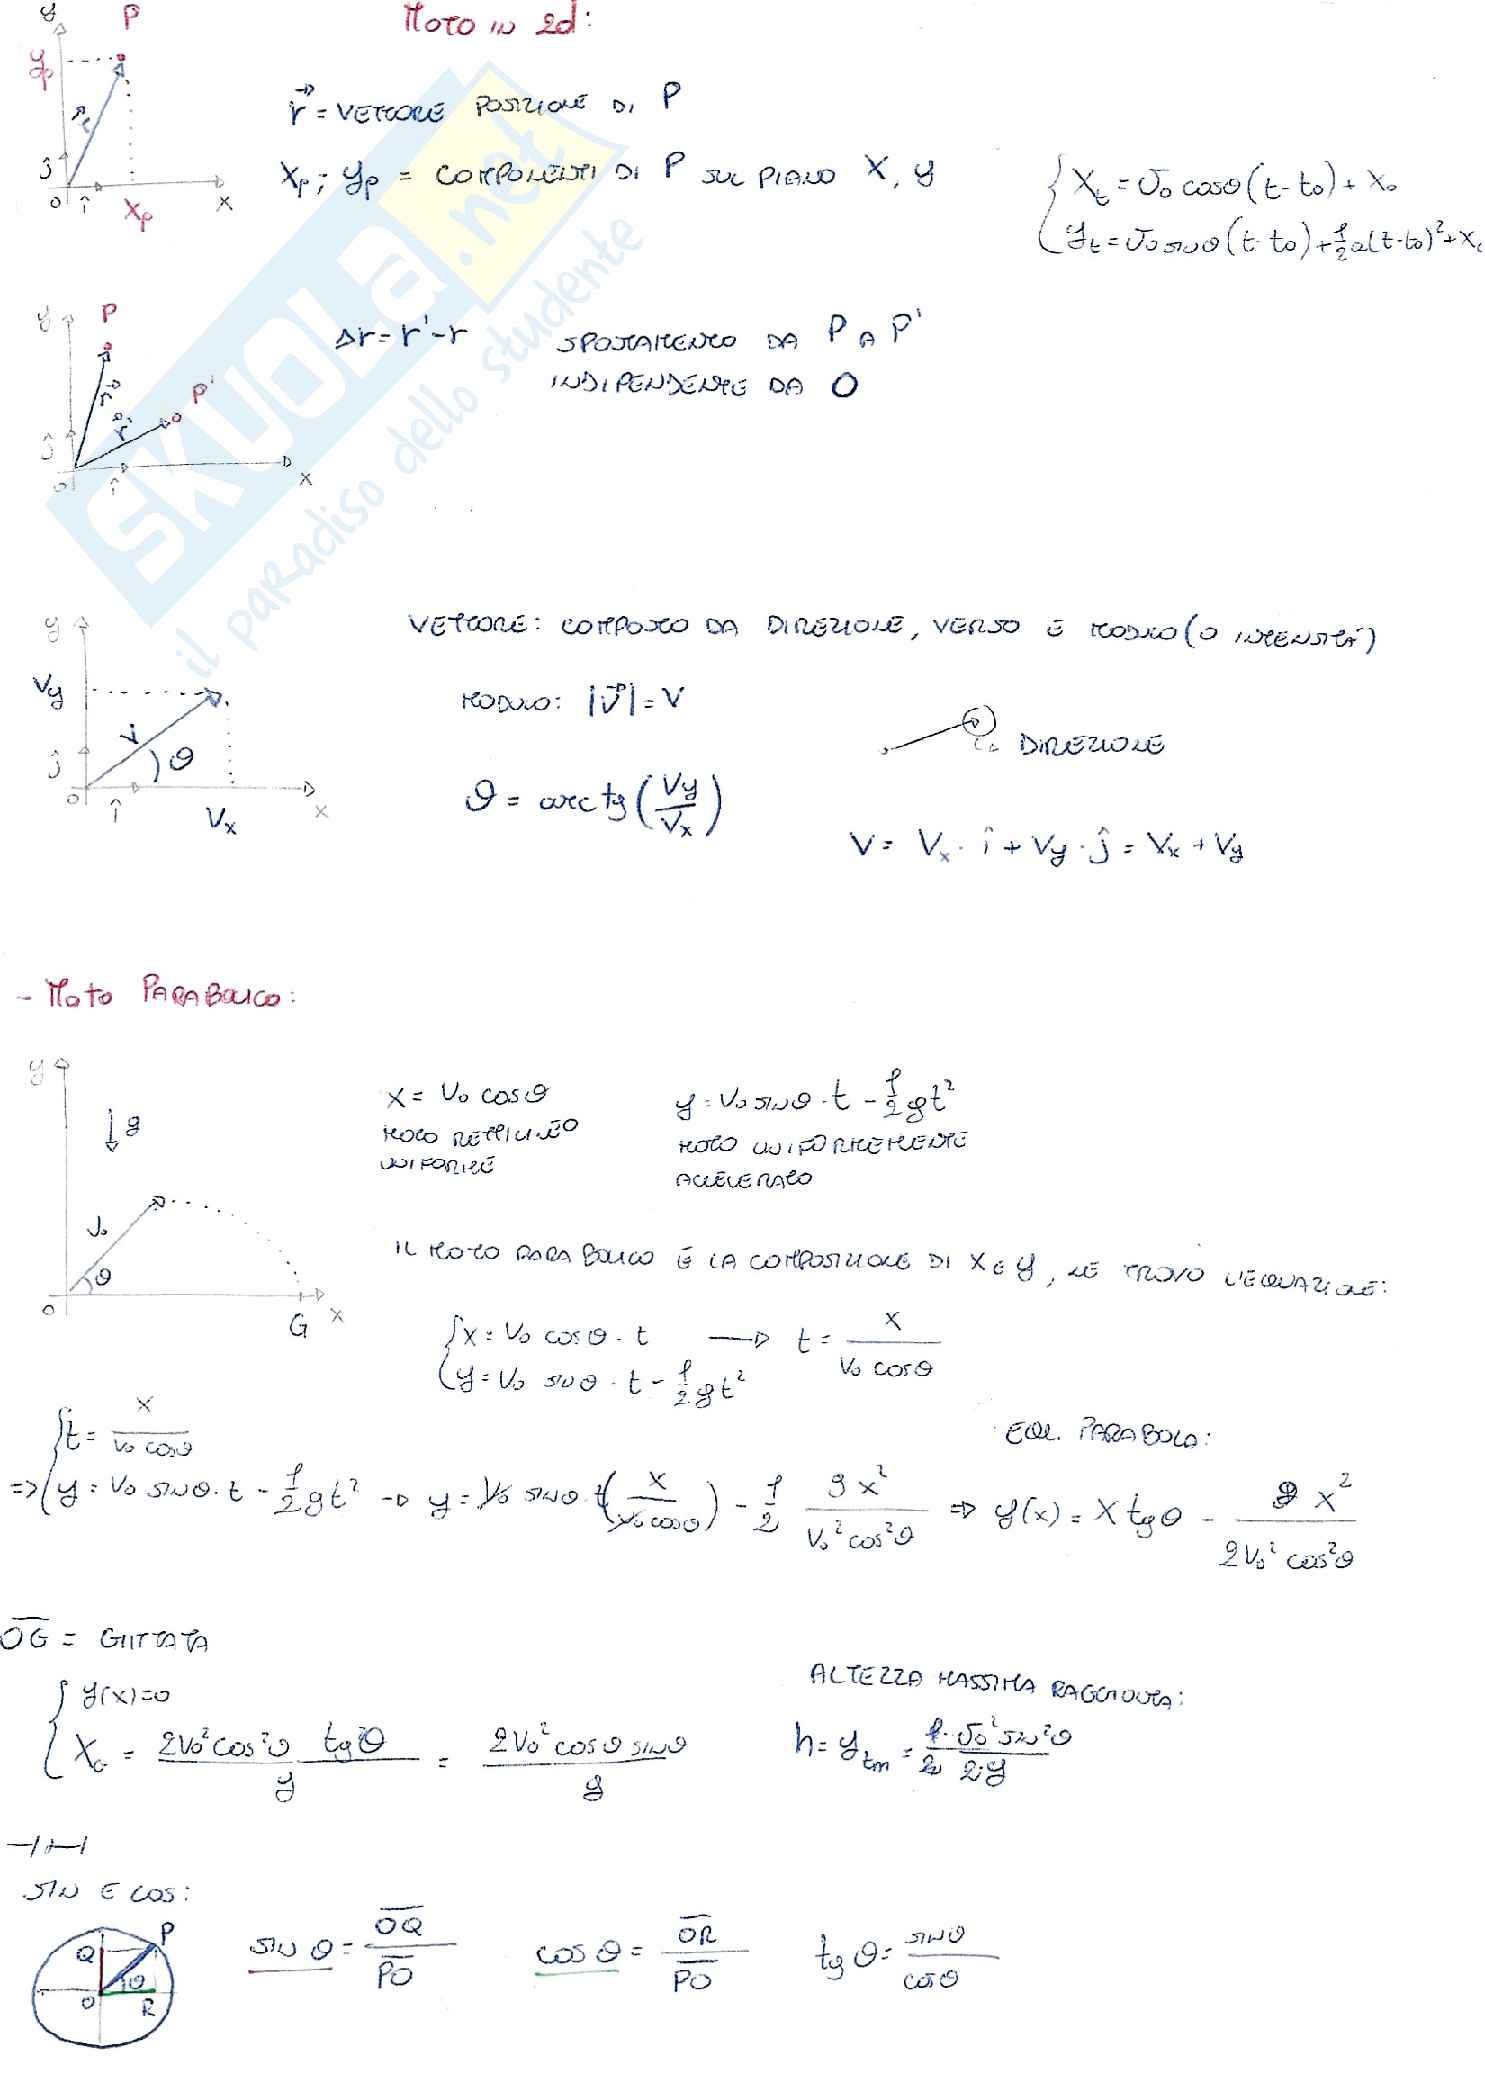 Moto in 2d:
y P
yp
r
ĵ
O î xp x
r⃗ = VETTORE POSIZIONE DI P
xp ; yp = COMPONENTI DI P SUL PIANO X, y
{ Xt = v0 cosθ (t - t0) + X0
yt = v0 sinθ (t - t0) + 1/2 a (t - t0)² + X0
y P
r⃗ P'
r⃗'
ĵ
O î x
Δr = r' - r SPOSTAMENTO DA P A P'
INDIPENDENTE DA O
y
Vy
v
ϑ
ĵ
O î Vx x
VETTORE: COMPOSTO DA DIREZIONE, VERSO E MODULO (O INTENSITÀ)
MODULO: |v⃗| = V
DIREZIONE
ϑ = arctg (Vy/Vx)
V = Vx · î + Vy · ĵ = Vx + Vy
- Moto PARABOLICO:
y
g
V0
θ
O G x
x = V0 cosθ
MOTO RETTILINEO
UNIFORME
y = V0 sinθ · t - 1/2 g t²
MOTO UNIFORMEMENTE
ACCELERATO
IL MOTO PARABOLICO È LA COMPOSIZIONE DI X E y, NE TROVO L'EQUAZIONE:
{ x = V0 cosθ · t → t = x / (V0 cosθ)
y = V0 sinθ · t - 1/2 g t²
{ t = x / (V0 cosθ)
EQU. PARABOLA:
=> y = V0 sinθ · t - 1/2 g t² → y = V0 sinθ · (x / (V0 cosθ)) - 1/2 g x² / (V0² cos²θ) => y(x) = X tgθ - g x² / (2V0² cos²θ)
OG = GITTATA
{ y(x) = 0
XG = 2V0² cos²θ tgθ / g = 2V0² cosθ sinθ / g
ALTEZZA MASSIMA RAGGIUNTA:
h = ytm = 1/2 · v0² sin²θ / 2·g
SIN E COS:
Q P
θ
O R
sin θ = OQ / PO
cos θ = OR / PO
tg θ = sinθ / cosθ
SKUOLA.net
il paradiso dello studente